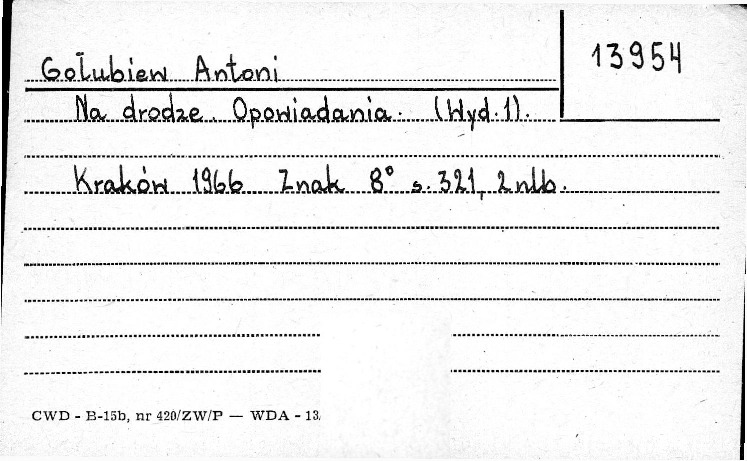 Gołubiew Antoni
13954
Na drodze. Opowiadania. (Wyd.1).
Kraków 1966 Znak 8° s.321, 2nlb.
CWD - B-15b, nr 420/ZW/P — WDA - 13.